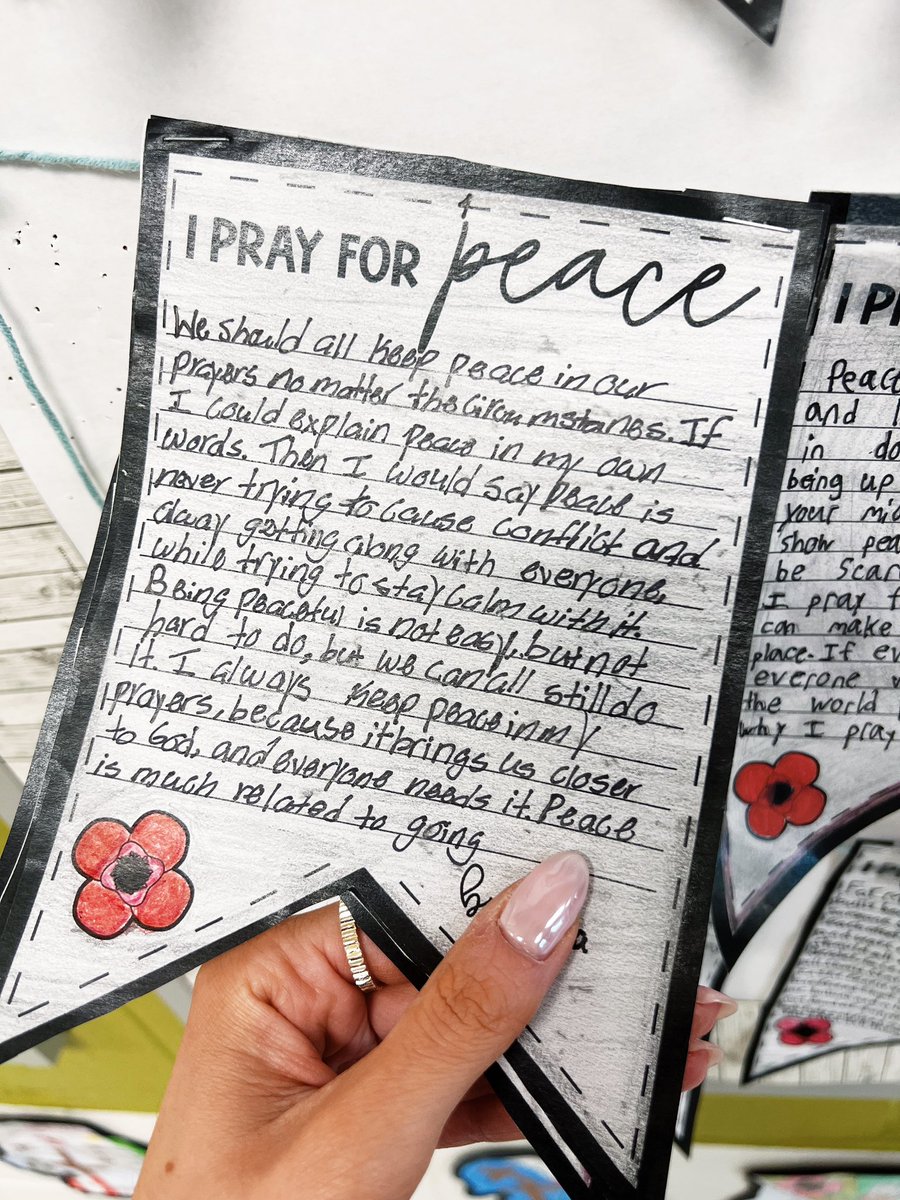 I PRAY FOR peace
We should all keep peace in our
prayers no matter the Circumstanes. If
I could explain peace in my own
words. Then I would say peace is
never trying to cause conflict and
alway getting along with everyone,
while trying to stay calm with it.
Being peaceful is not easy, but not
hard to do, but we can all still do
it. I always keep peace in my
prayers, because it brings us closer
to God, and everyone needs it. Peace
is much related to going
I PR
Peace
and
in do
being up
your mi
show pea
be Scar
I pray f
can make
place. If ev
everone w
the world
why I pray